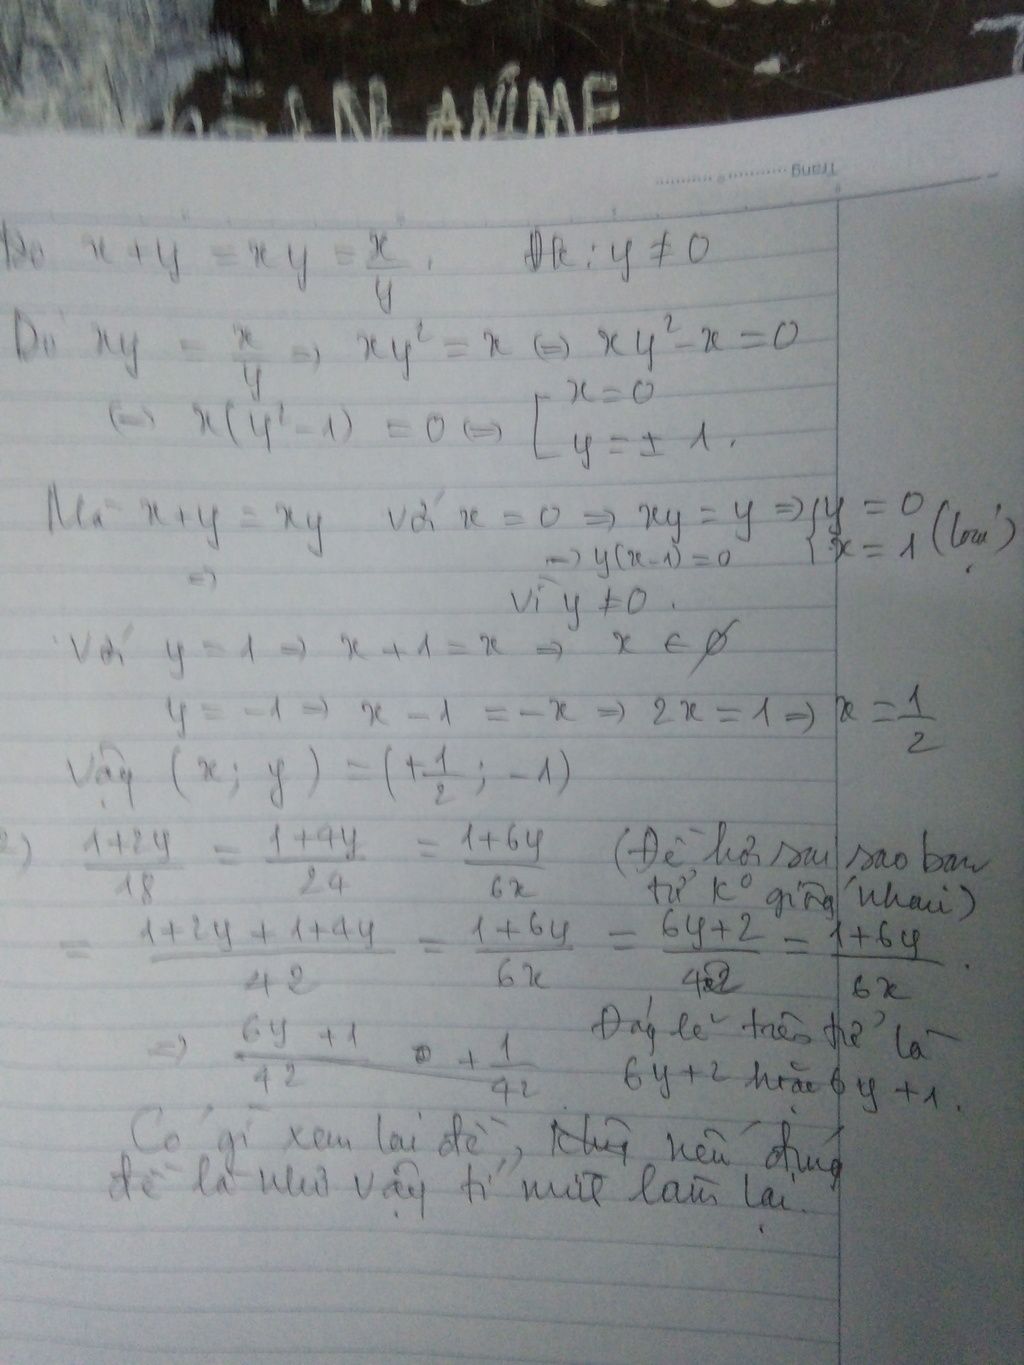 ANIME
Trang
x + y = xy = x/y. ĐK: y ≠ 0
Do xy = x/y => xy² = x <=> xy² - x = 0
<=> x(y² - 1) = 0 <=> [ x = 0
y = ± 1.
Mà x + y = xy với x = 0 => xy = y => { y = 0
=> => y(x-1) = 0 x = 1 (loại)
Vì y ≠ 0.
Với y = 1 => x + 1 = x => x ∈ ∅
y = -1 => x - 1 = -x => 2x = 1 => x = 1/2
Vậy (x; y) = (+1/2; -1)
2) (1+2y)/18 = (1+4y)/24 = (1+6y)/6x (Đề hơi sai sao ban
tử k° giống nhau)
= (1+2y+1+4y)/42 = (1+6y)/6x = (6y+2)/42 = (1+6y)/6x.
=> (6y+1)/42 + 1/42 Đáng lẽ trên tử là
6y+2 hoặc 6y+1.
Có gì xem lại đề, nếu đúng
đề là như vậy tí mình làm lại.